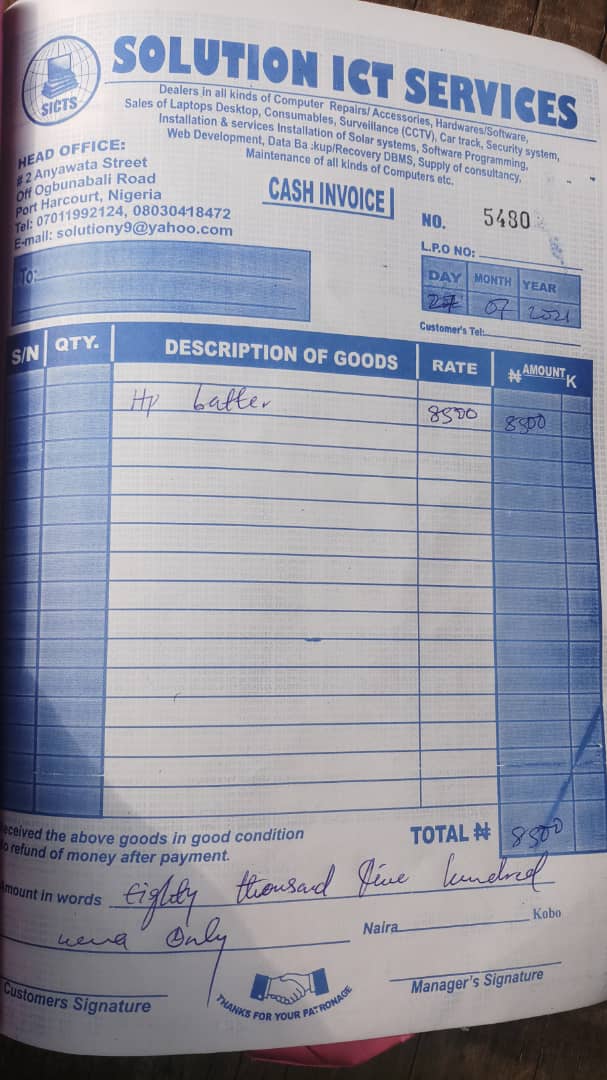 SICTS
SOLUTION ICT SERVICES
Dealers in all kinds of Computer Repairs/Accessories, Hardwares/Software,
Sales of Laptops Desktop, Consumables, Surveillance (CCTV), Car track, Security system,
Installation & services Installation of Solar systems, Software Programming,
Web Development, Data Ba :kup/Recovery DBMS, Supply of consultancy,
Maintenance of all kinds of Computers etc.
HEAD OFFICE:
# 2 Anyawata Street
Off Ogbunabali Road
Port Harcourt, Nigeria
Tel: 07011992124, 08030418472
E-mail: solutiony9@yahoo.com
CASH INVOICE
NO. 5480
L.P.O NO:
To:
DAY MONTH YEAR
27 07 2021
Customer's Tel:
S/N QTY. DESCRIPTION OF GOODS RATE ₦ AMOUNT K
Hp batter 8500 8500
eceived the above goods in good condition
o refund of money after payment.
TOTAL ₦ 8500
mount in words Eighty thousand five hundred
Only
Naira Kobo
Customers Signature
THANKS FOR YOUR PATRONAGE
Manager's Signature